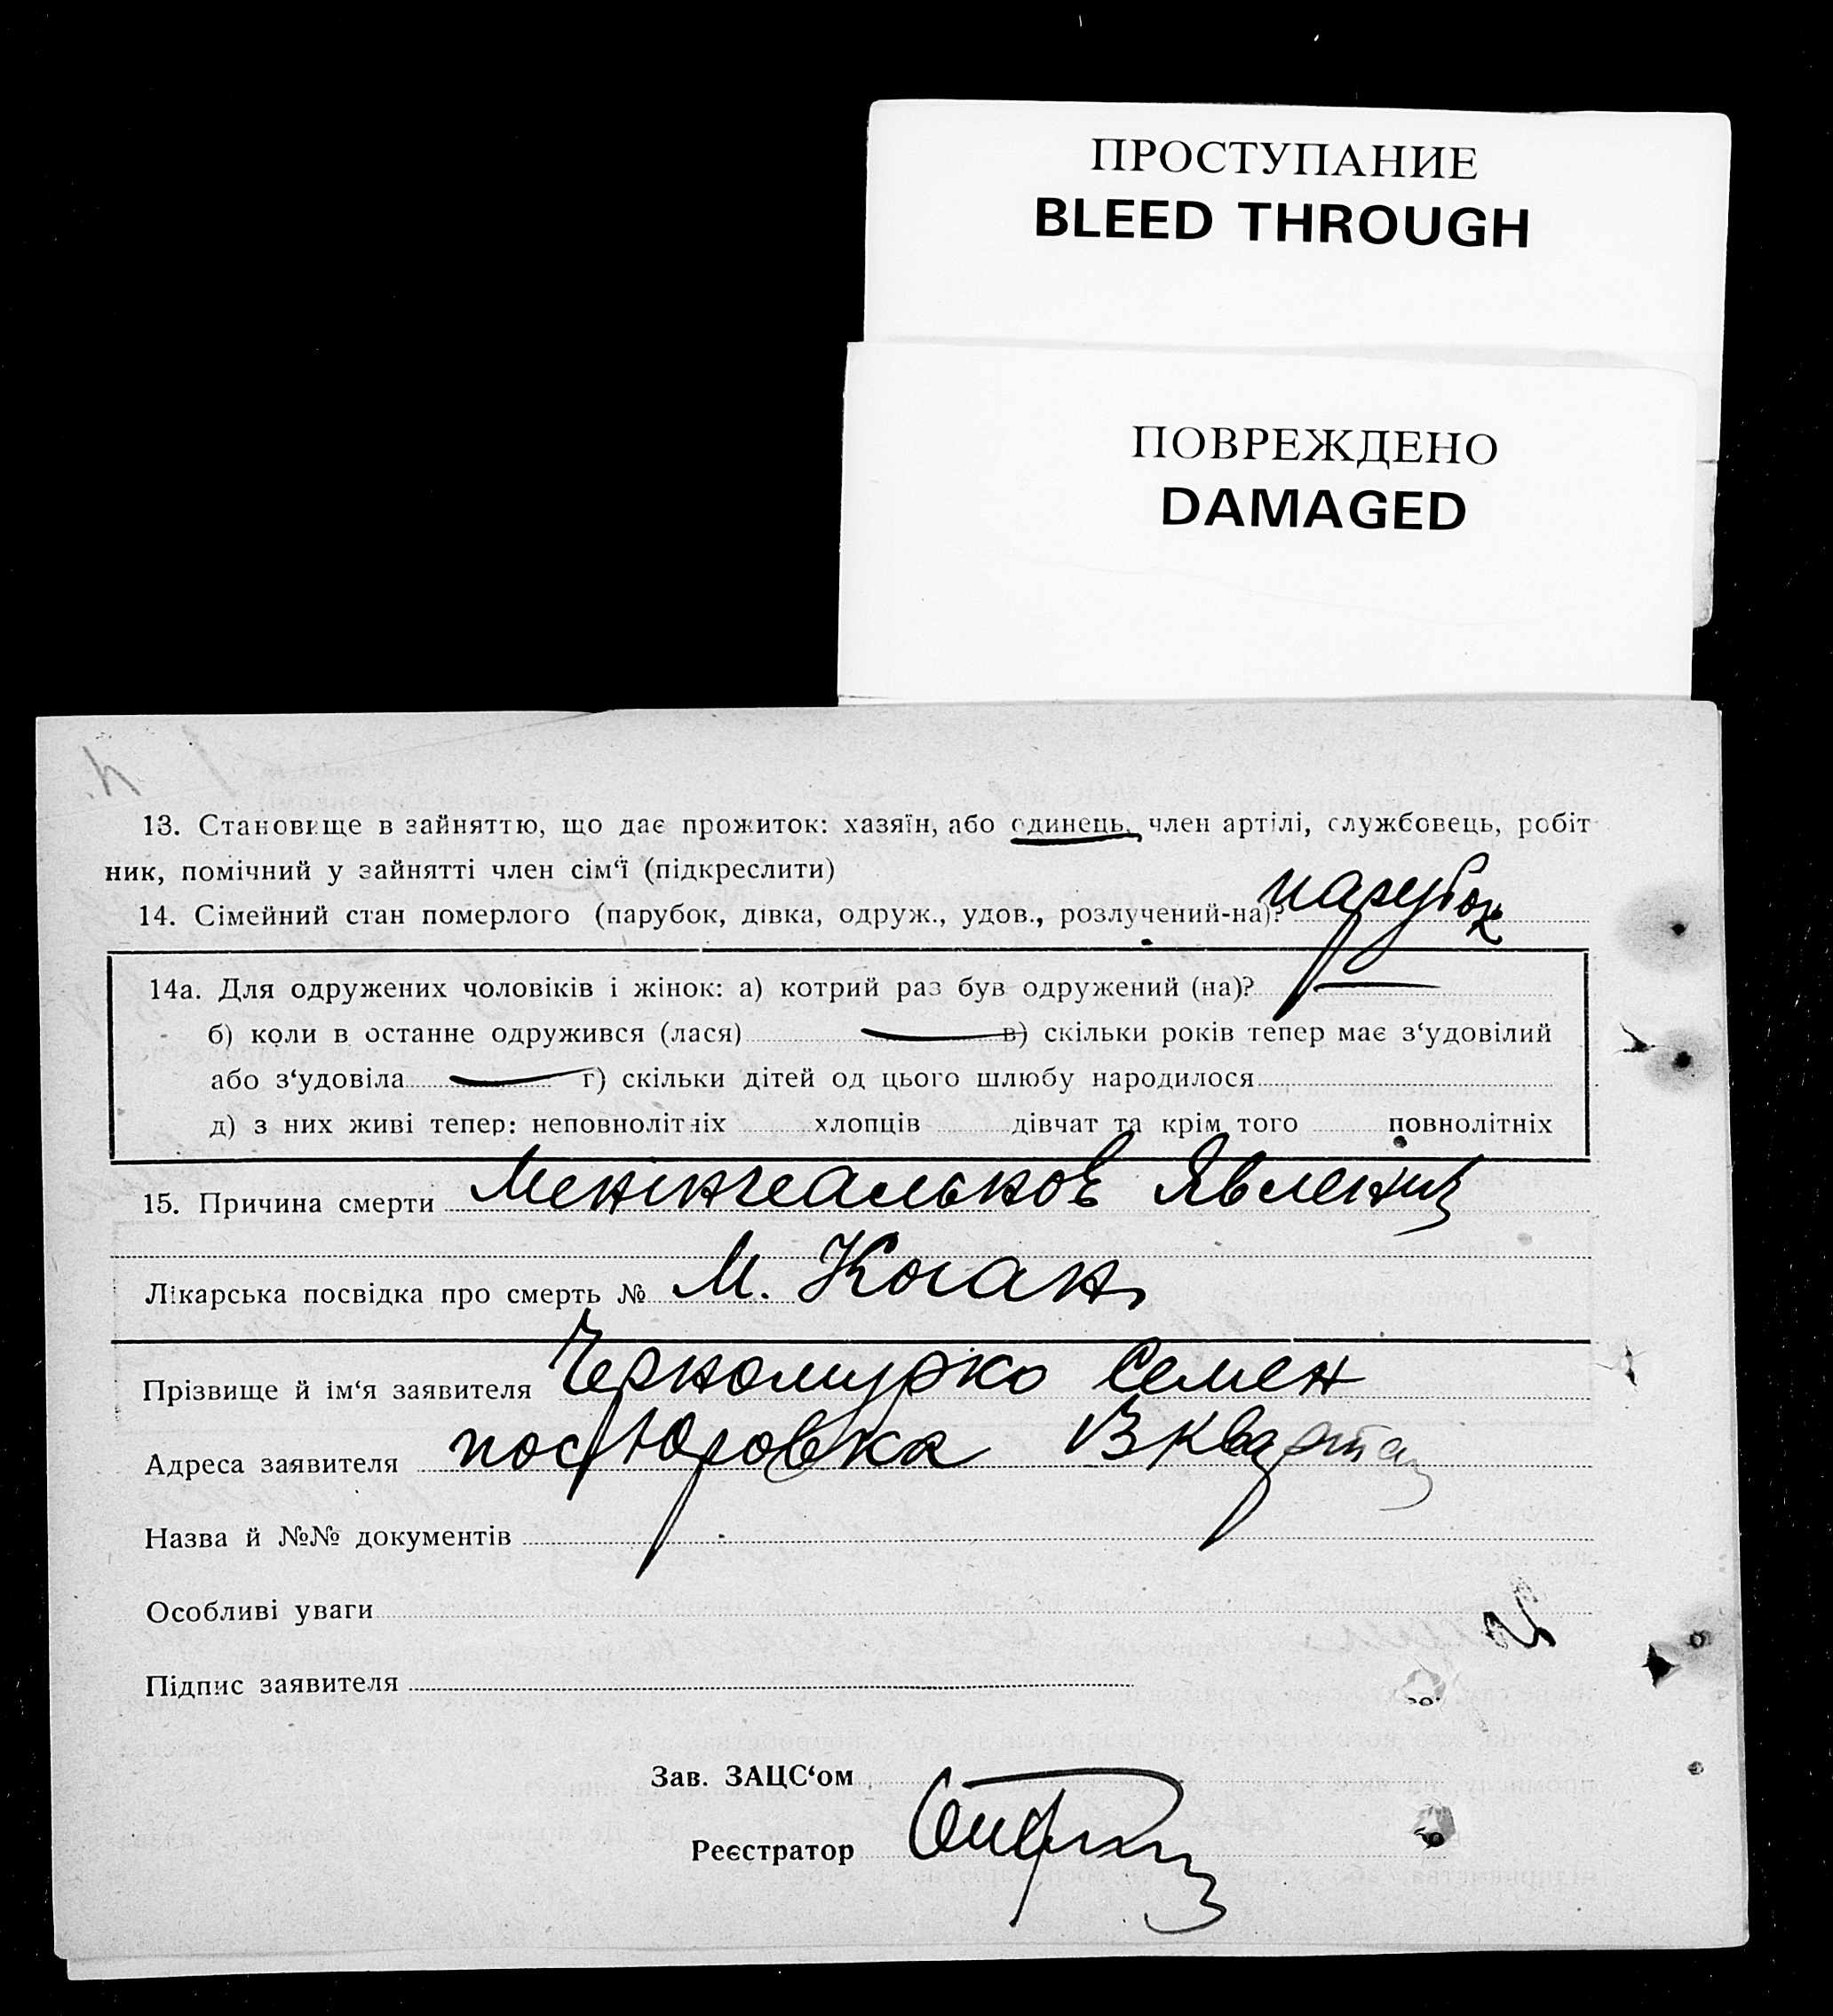 ПРОСТУПАНИЕ
BLEED THROUGH
ПОВРЕЖДЕНО
DAMAGED
13. Становище в зайняттю, що дає прожиток: хазяїн, або одинець, член артілі, службовець, робіт
ник, помічний у зайнятті член сім‘ї (підкреслити)
14. Сімейний стан померлого (парубок, дівка, одруж., удов., розлучений-на)? парубок
14а. Для одружених чоловіків і жінок: а) котрий раз був одружений (на)? —
б) коли в останне одружився (лася) — в) скільки років тепер має з‘удовілий
або з‘удовіла — г) скільки дітей од цього шлюбу народилося
д) з них живі тепер: неповнолітніх хлопців дівчат та крім того повнолітніх
15. Причина смерти Менінгеальнов Явлений
Лікарська посвідка про смерть № М. Коган
Прізвище й ім‘я заявителя Черномурко Семен
Адреса заявителя пос Юровка 13 квартал
Назва й №№ документів
Особливі уваги
Підпис заявителя
Зав. ЗАЦС‘ом
Реєстратор